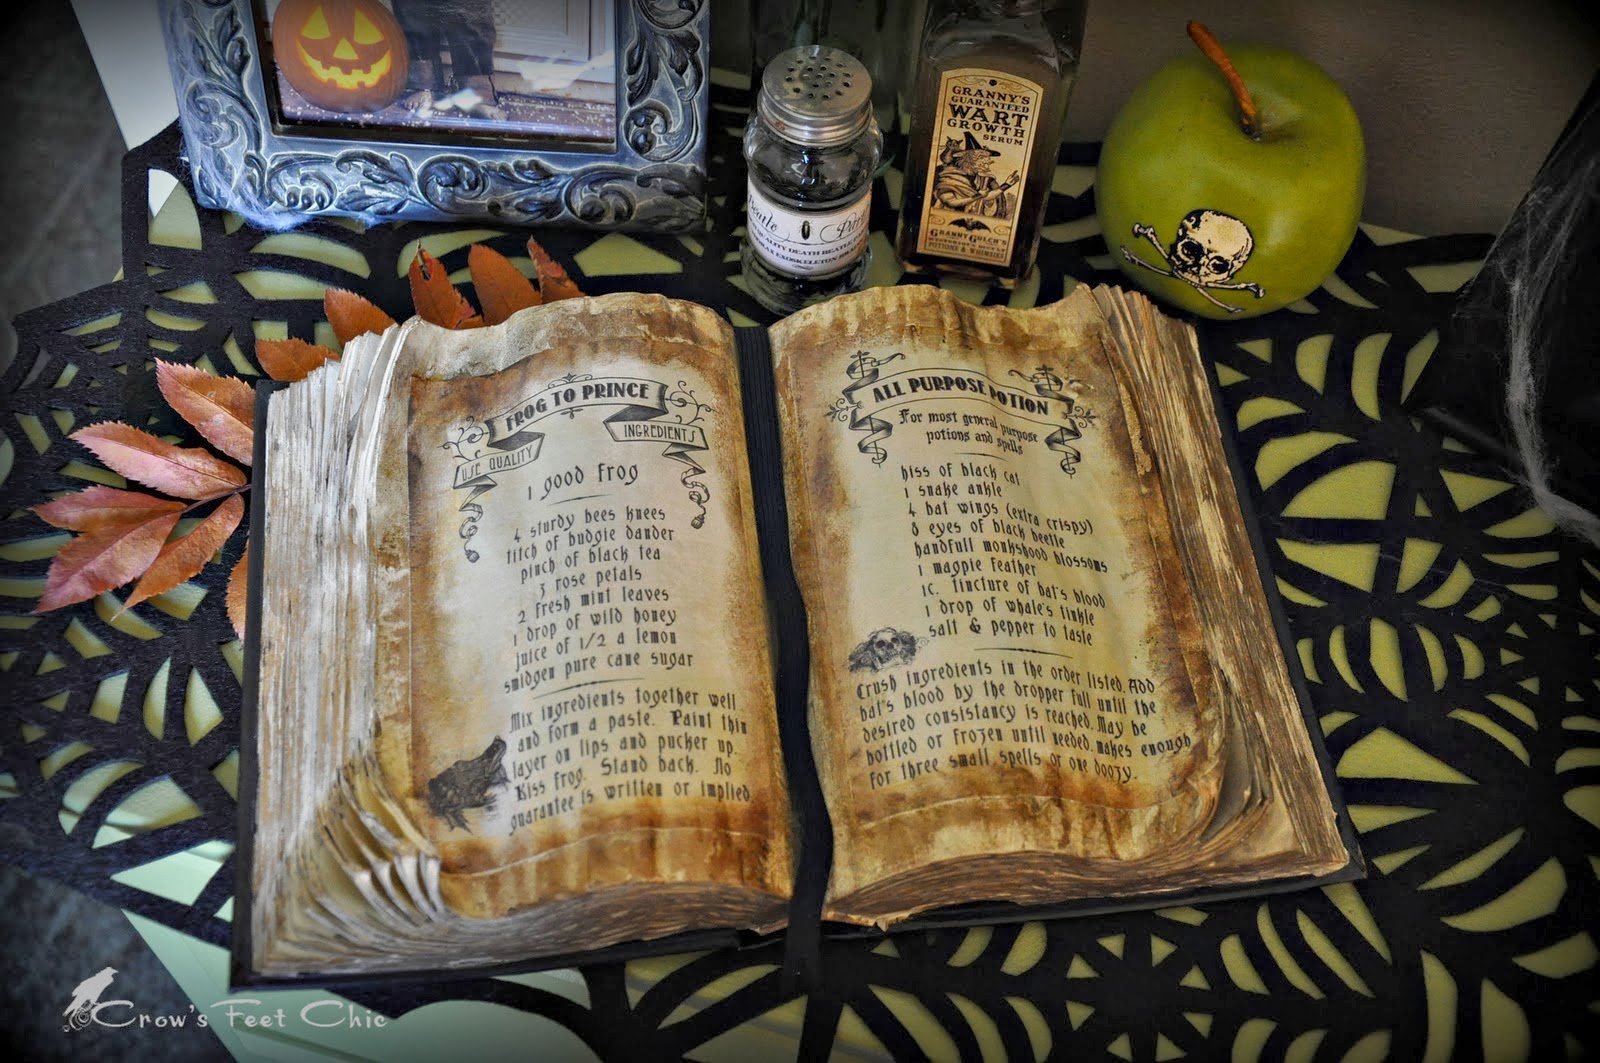 GRANNY'S
GUARANTEED
WART
GROWTH
SERUM
GRANNY GULCH'S
POTIONS & WHIMSIES
Beatle
QUALITY DEATH BEATLE
EXOSKELETON
FROG TO PRINCE
USE QUALITY
INGREDIENTS
1 good frog
4 sturdy bees knees
titch of budgie dander
pinch of black tea
3 rose petals
2 fresh mint leaves
1 drop of wild honey
juice of 1/2 a lemon
smidgen pure cane sugar
Mix ingredients together well
and form a paste. Paint thin
layer on lips and pucker up.
Kiss frog. Stand back. No
guarantee is written or implied.
ALL PURPOSE POTION
For most general purpose
potions and spells
hiss of black cat
1 snake ankle
4 bat wings (extra crispy)
8 eyes of black beetle
handfull monkshood blossoms
1 magpie feather
1c. tincture of bat's blood
1 drop of whale's tinkle
salt & pepper to taste
Crush ingredients in the order listed. Add
bat's blood by the dropper full until the
desired consistancy is reached. May be
bottled or frozen until needed. makes enough
for three small spells or one doozy.
Crow's Feet Chic